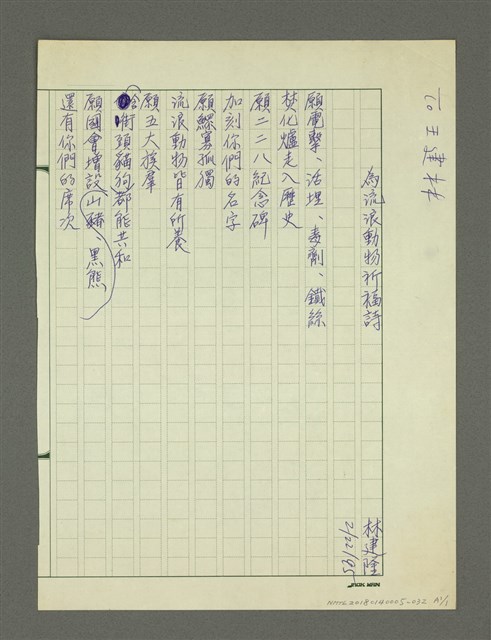 To 王建材
為流浪動物祈福詩
林建隆
2/22/95
願電擊、活埋、毒劑、鐵絲
焚化爐走入歷史
願二二八紀念碑
加刻你們的名字
願鰥寡孤獨
流浪動物皆有所養
願五大族羣
街頭貓狗都能共和
願國會增設山豬、黑熊
還有你們的席次